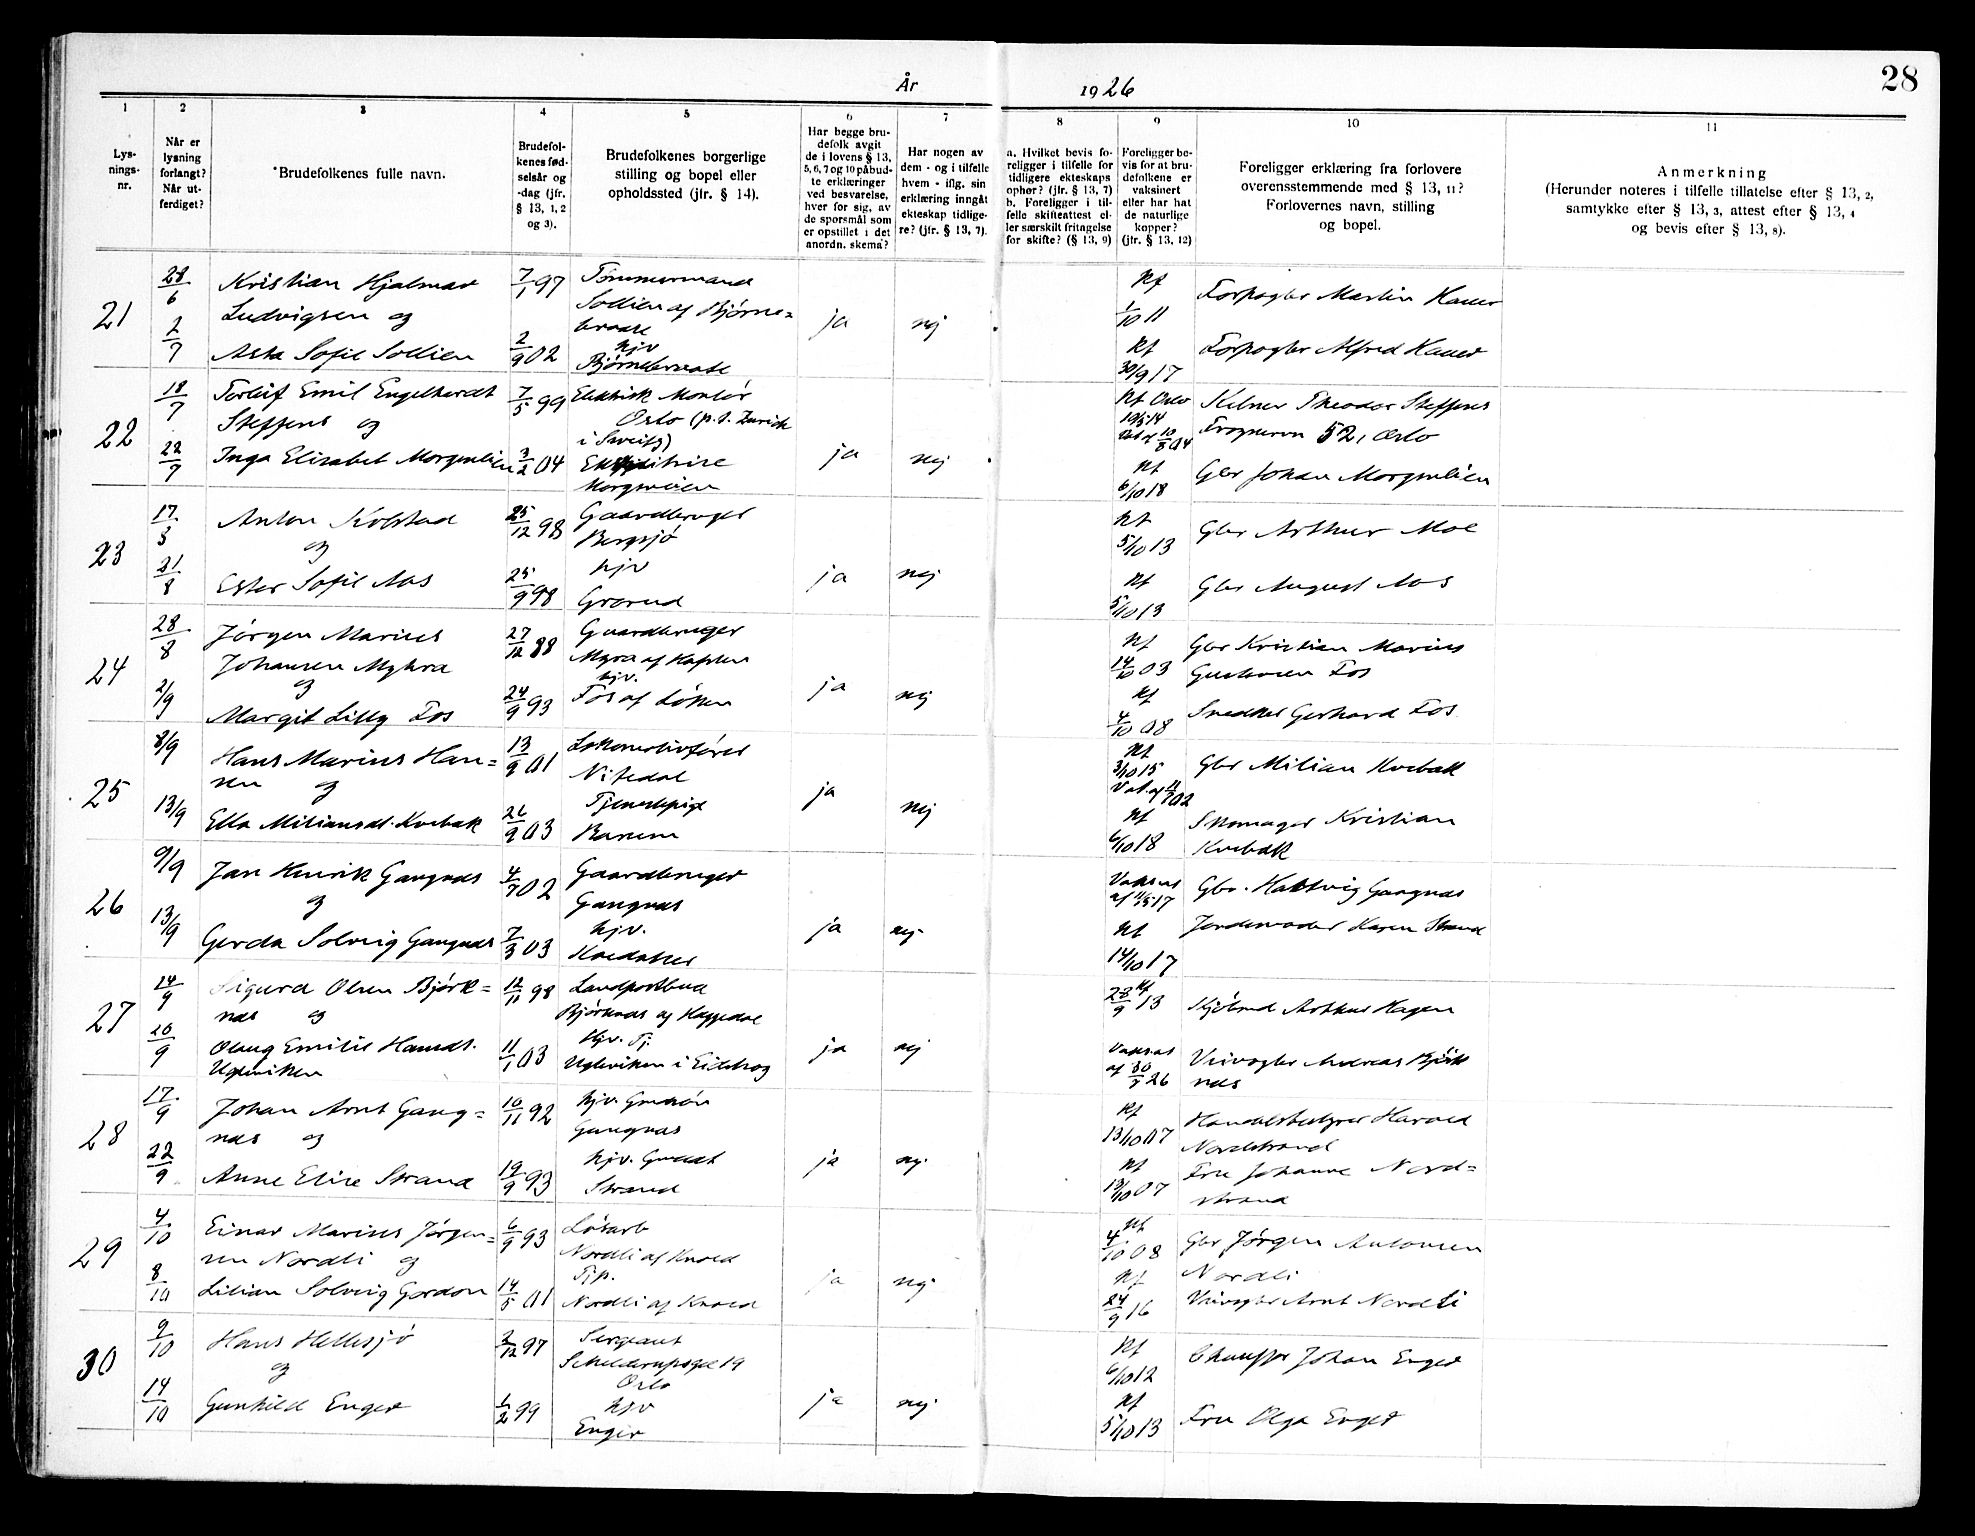 28
År 1926
1 2 3 4 5 6 7 8 9 10 11
Lys-
nings-
nr.
Når er
lysning
forlangt?
Når ut-
ferdiget?
Brudefolkenes fulle navn.
Brudefol-
kenes fød-
selsår og
-dag (jfr.
§ 13, 1, 2
og 3).
Brudefolkenes borgerlige
stilling og bopel eller
opholdssted (jfr. § 14).
Har begge bru-
defolk avgit
de i lovens § 13,
5, 6, 7 og 10 påbud-
te erklæringer
ved besvarelse,
hver for sig, av
de spørsmål som
er opstillet i det
anordn. skema?
Har nogen av
dem - og i tilfelle
hvem - iflg. sin
erklæring inngåt
ekteskap tidlige-
re? (jfr. § 13, 7).
a. Hvilket bevis fo-
religger i tilfelle for
tidligere ekteskaps
ophør? (jfr. § 13, 7)
b. Foreligger i til-
felle skifteattest el-
ler særskilt fritagelse
for skifte? (§ 13, 9)
Foreligger be-
vis for at bru-
defolkene er
vaksinert
eller har hat
de naturlige
kopper?
(jfr. § 13, 12)
Foreligger erklæring fra forlovere
overensstemmende med § 13, 11?
Forlovernes navn, stilling
og bopel.
Anmerkning
(Herunder noteres i tilfelle tillatelse efter § 13, 2,
samtykke efter § 13, 3, attest efter § 13, 4
og bevis efter § 13, 8).
21
28/6
2/7
Kristian Hjalmar
Ludvigsen og
Asta Sofie Sollien
7/1 97
2/9 02
Tømmermand
Sollien af Bjørne-
braate
hjv
Bjørnebraate
ja
nej
Kf
1/10 11
Kf
30/9 17
Forpagter Martin Hauer
Forpagter Alfred Hauer
22
18/7
22/7
Torleif Emil Engelhardt
Steffens og
Inga Elisabet Morgenlien
7/5 99
3/2 04
Elektrisk Montør
Oslo (p.t. Zurich
i Sveits)
Morgenlien
ja
nej
Kf Oslo
Kf
6/10 18
Kelner Theodor Steffens
52, Oslo
Gbr Johan Morgenlien
23
17/8
21/8
Anton Kolstad
og
Ester Sofie Aas
25/12 98
25/9 98
Gaardbruger
Bergsjø
hjv
Grorud
ja
nej
Kf
5/10 13
Kf
5/10 13
Gbr Arthur Moe
Gbr August Aas
24
28/8
2/9
Jørgen Marius
Johansen Myhra
og
Margit Lilly Fos
27/12 88
24/9 93
Gaardbruger
Myra af
hjv.
Fos af Løken
ja
nej
Kf
14/10 03
Kf
4/10 08
Gbr Kristian Marius
Gustavsen Fos
Snedker Gerhard Fos
25
8/9
13/9
Hans Marius Han-
sen og
Ella Miliansdt. Kvebæk
13/9 01
26/9 03
Lokomotivfører
Nitedal
Tjenestepige
Bærum
ja
nej
Kf
3/10 15
Kf
6/10 18
Gbr Milian Kvebæk
Skomager Kristian
Kvebæk
26
9/9
13/9
Jan Henrik Gangnæs
og
Gerda Solveig Gangnæs
4/7 02
7/3 03
Gaardbruger
Gangnæs
hjv.
ja
nej
Kf
14/10 17
Gbr. Hartvig Gangnæs
Jordemoder Karen Strand
27
14/9
20/9
Sigurd Olsen Bjørk-
næs og
Olaug Emilie Hansdt.
Ugleviken
12/11 98
11/1 03
Landpostbud
Bjørknæs af
Hjv. Tj.
Ugleviken i Eidskog
ja
nej
28/9 Kf 13
Arthur Hagen
Andreas Bjørk
næs
28
17/9
22/9
Johan Arnt Gang-
næs og
Anne Elise Strand
10/11 92
19/9 93
Gangnæs
hjv.
Strand
ja
nej
Kf
13/10 07
Kf
13/10 07
Handelsbestyrer Harald
Nordstrand
Fru Johanne Nord-
strand
29
4/10
8/10
Einar Marius Jørgen-
sen Nordli og
Lilian Solveig Gordon
6/9 93
14/5 01
Løsarb
Nordli af Knold
Tjp.
Nordli af Knold
ja
nej
Kf
4/10 08
Kf
24/9 16
Gbr Jørgen Antonsen
Nordli
Arnt Nordli
30
9/10
14/10
Hans Hellesjø
og
Gunhild Enger
2/12 97
1/2 99
Sergeant
Schilderupsgt 19
Oslo
hjv
Enger
ja
nej
Kf
6/10 12
Kf
5/10 13
Chauffør Johan Enger
Fru Olga Enger